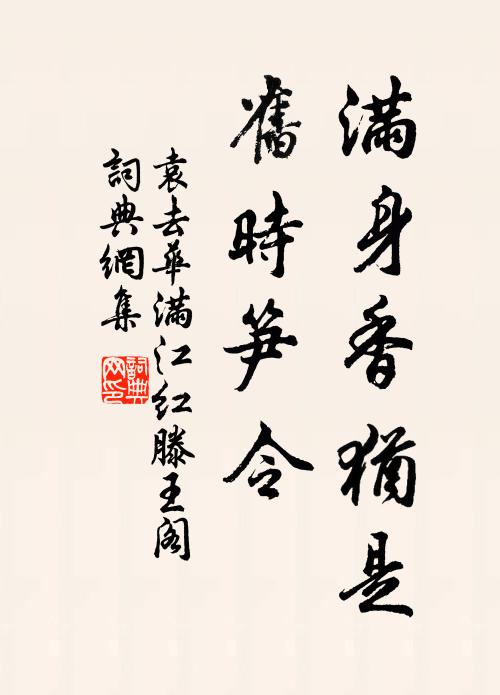 滿身香猶是
舊時笋令
袁去華滿江紅滕王阁
詞典網集
詞典
网印